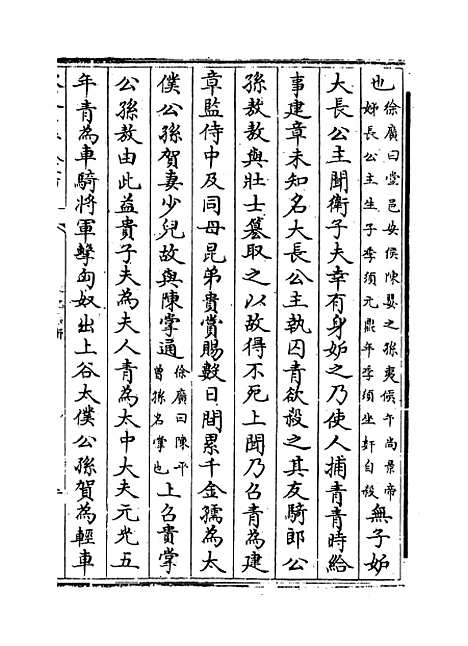 也徐廣曰堂邑安侯陳嬰之孫夷侯午尚景帝姊長公主生子季須元鼎年季須坐奸自殺無子妒
大長公主聞衛子夫幸有身妒之乃使人捕青青時給
事建章未知名大長公主執囚青欲殺之其友騎郎公
孫敖敖與壯士篡取之以故得不死上聞乃召青為建
章監侍中及同母昆弟貴賞賜數日間累千金孺為太
僕公孫賀妻少兒故與陳掌通徐廣曰陳平曾孫名掌也上召貴掌
公孫敖由此益貴子夫為夫人青為太中大夫元光五
年青為車騎將軍擊匈奴出上谷太僕公孫賀為輕車